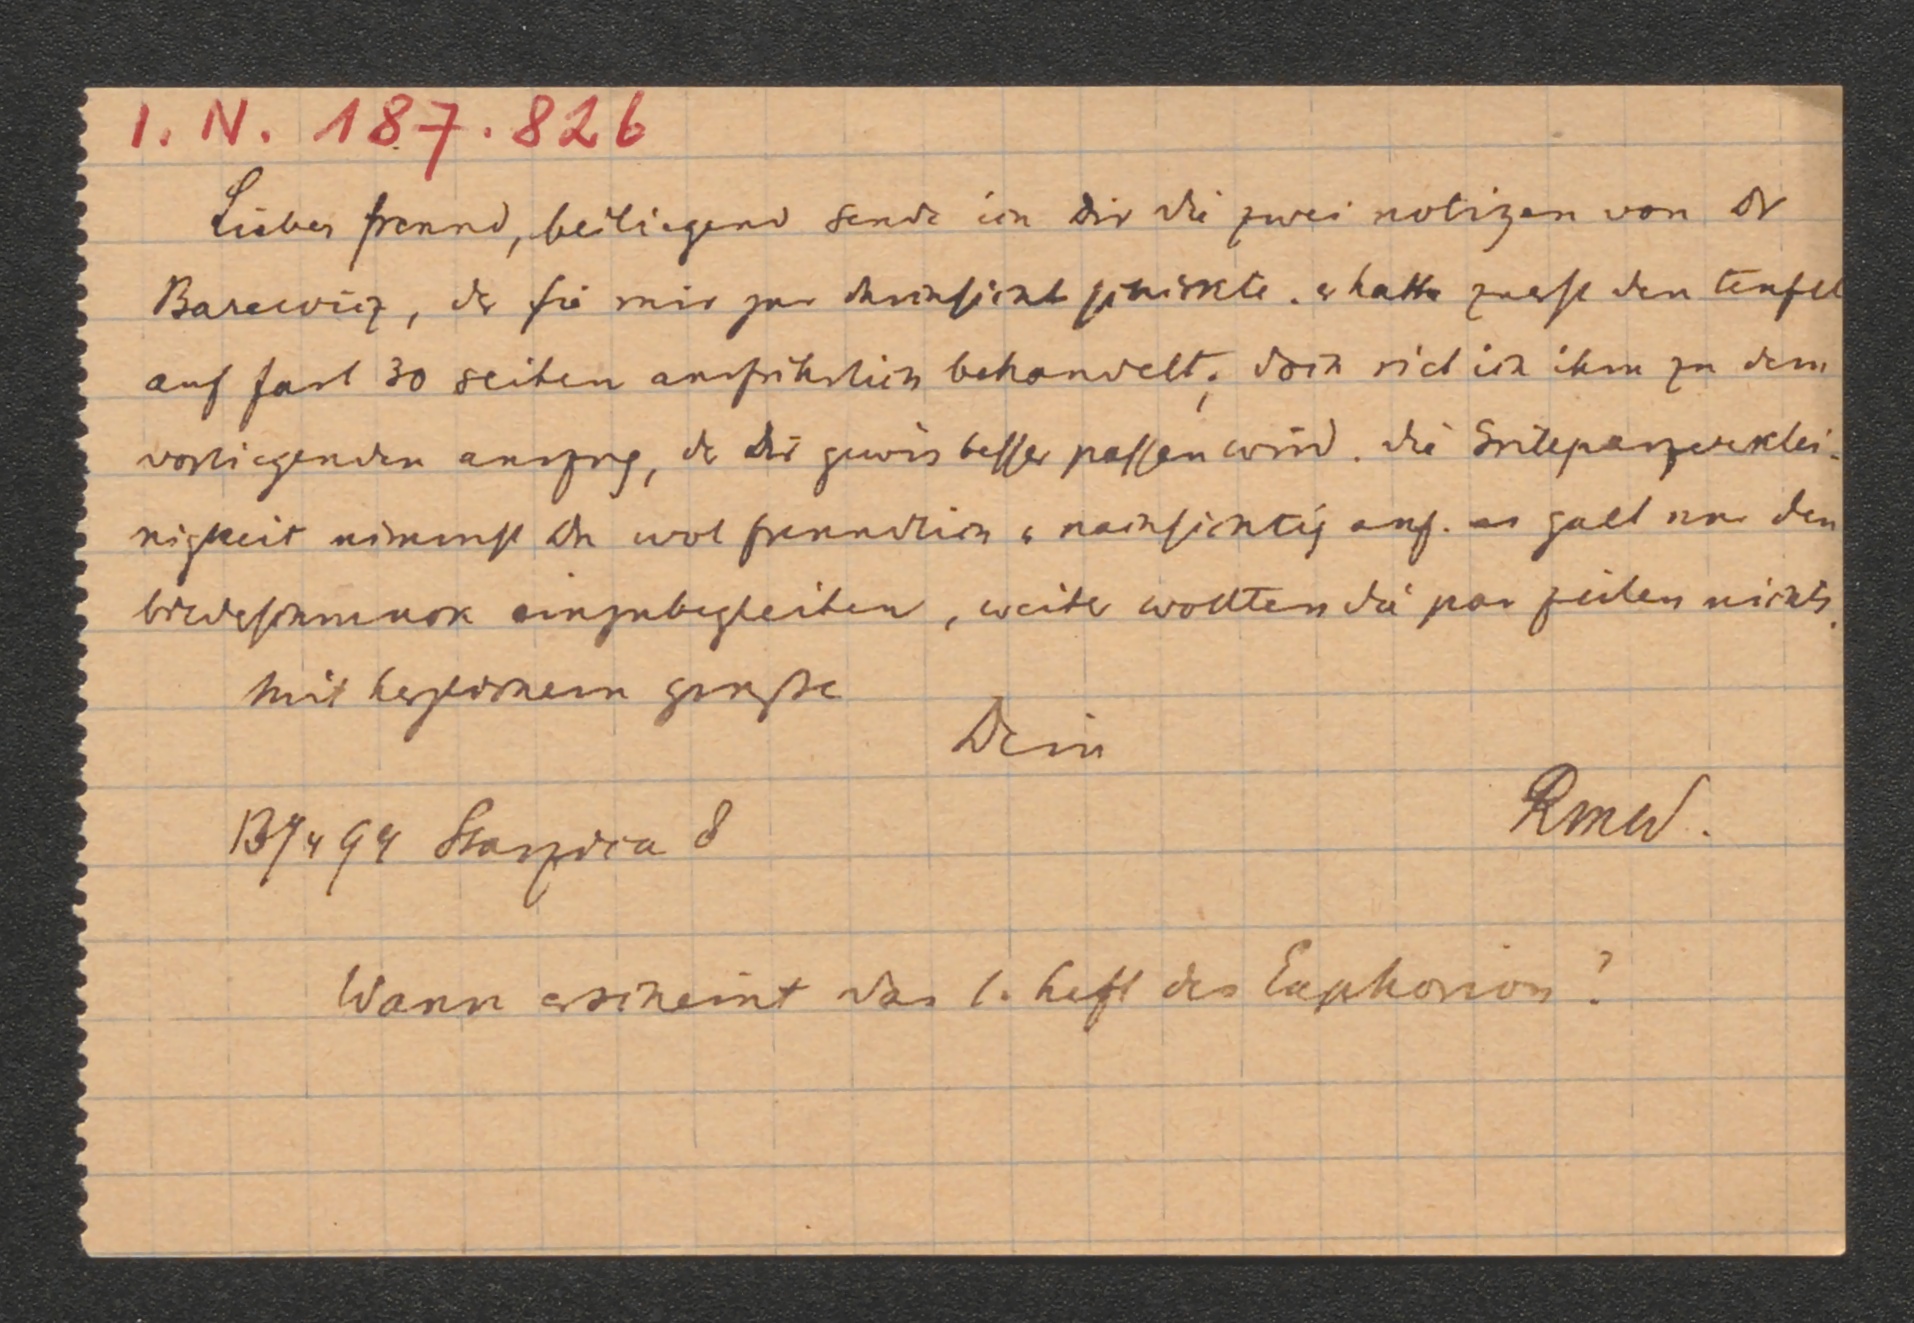 I. N. 187.826
Lieber freund, beiliegend sende ich Dir die zwei notizen von Dr
Barewicz, der sie mir zur durchsicht schickte. er hatte zuerst den teufel
auf fast 30 seiten ausführlich behandelt; doch riet ich ihm zu dem
vorliegenden auszug, der Dir gewis besser passen wird. die Grillparzerklei-
nigkeit nimmst Du wol freundlich u nachsichtig auf. es galt nur den
einzubegleiten, weiter wollten die par zeilen nichts.
Mit herzlichem grusze
Dein
RMW.
13/4 94 8
Wann erscheint das 1. heft des Euphorion?